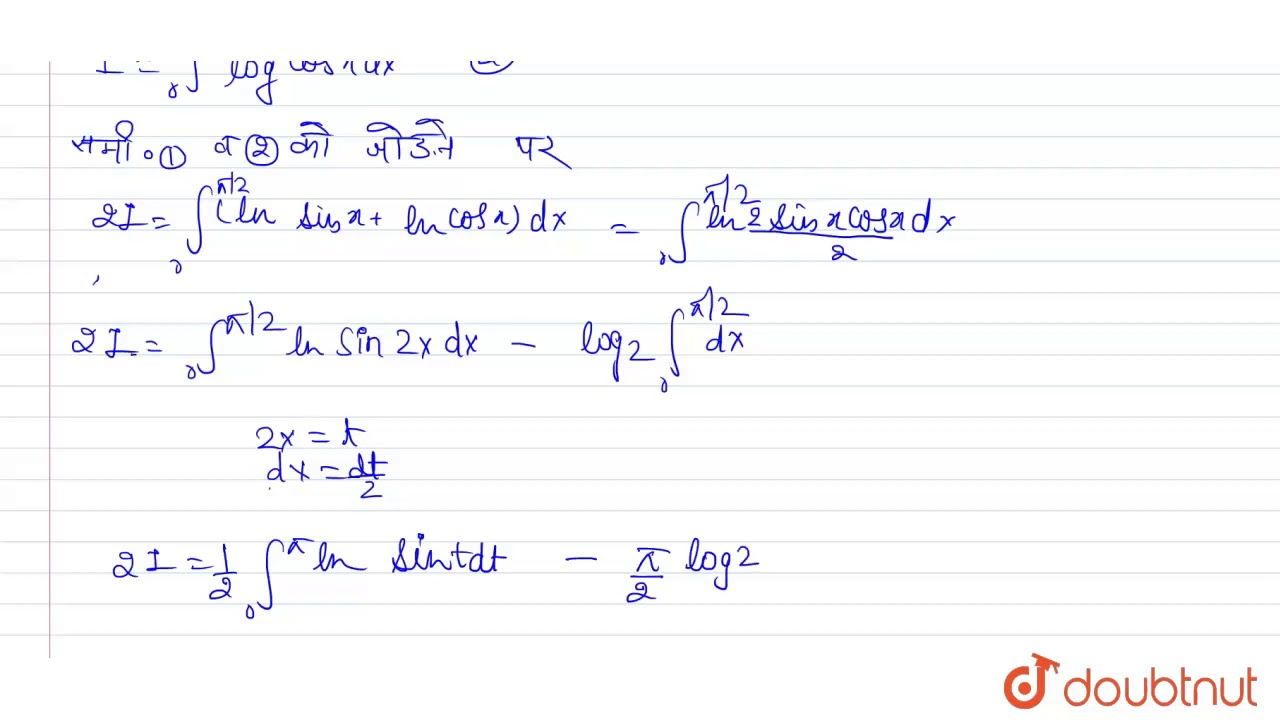 I = ₀∫ log cosx dx ②
समी॰① व ② को जोडने पर
2I = ₀∫^π/2 (ln sinx + ln cosx) dx = ₀∫^π/2 ln 2 sinx cosx/2 dx
2I = ₀∫^π/2 ln sin 2x dx – log2 ₀∫^π/2 dx
2x = t
dx = dt/2
2I = 1/2 ₀∫^π ln sint dt – π/2 log2
doubtnut